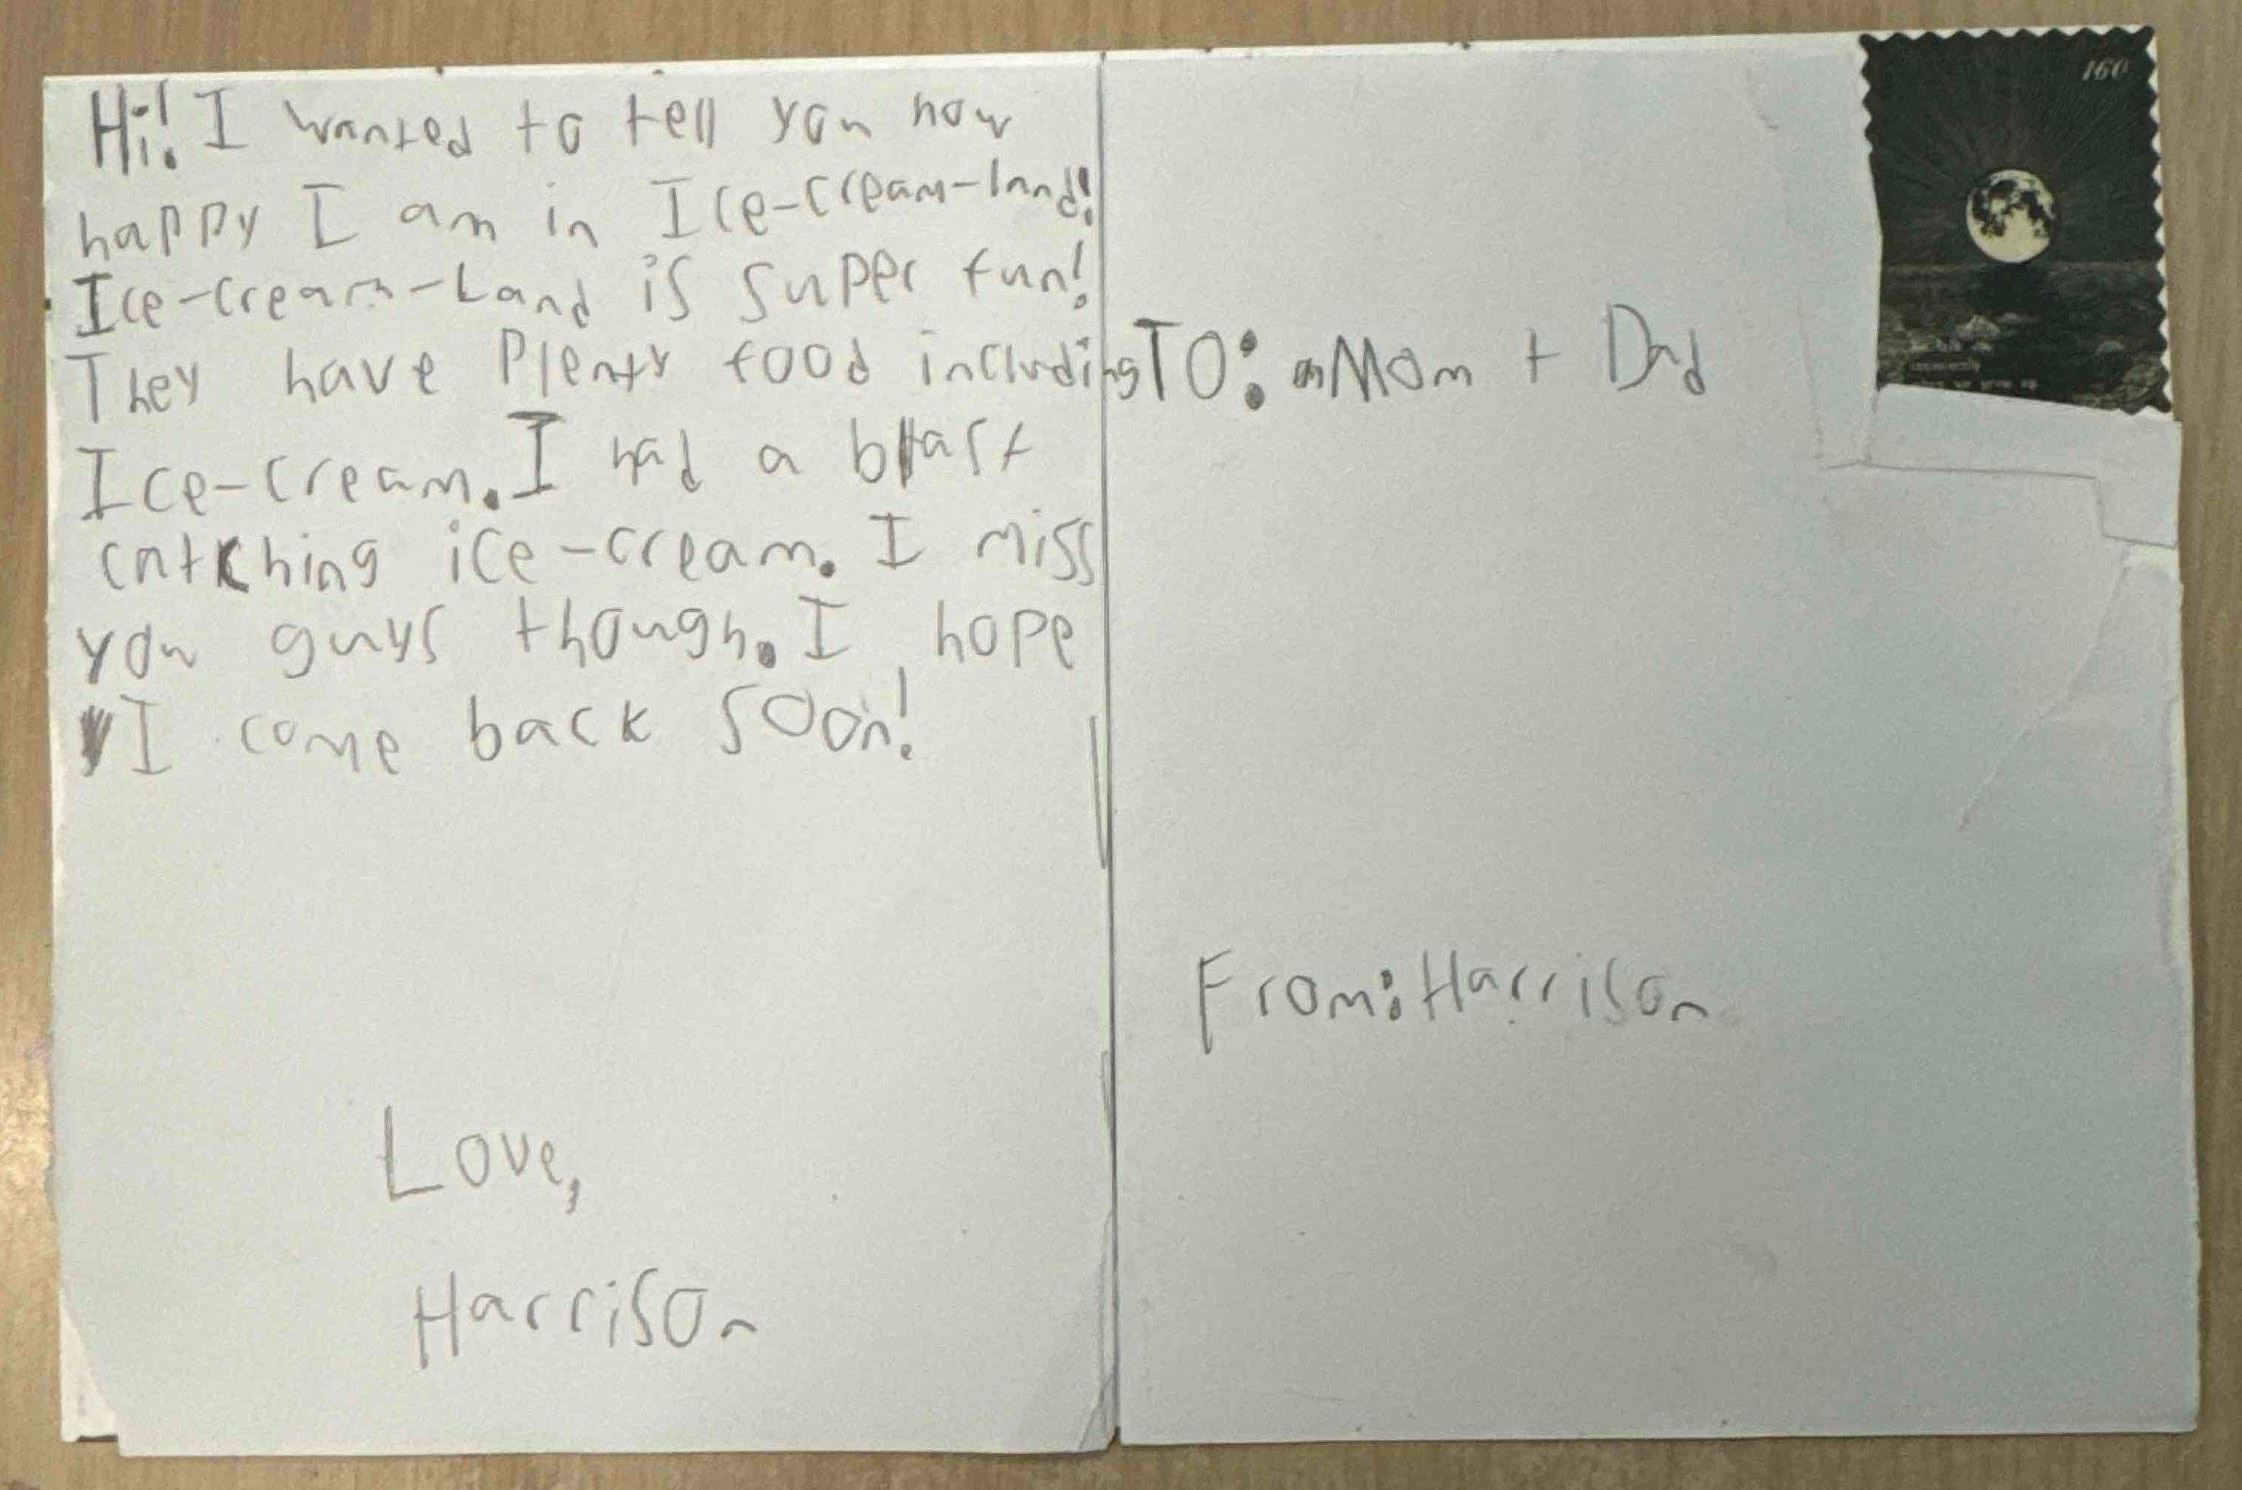 Hi! I wanted to tell you how
happy I am in Ice-cream-land!
Ice-cream-Land is super fun!
They have Plenty food including
Ice-cream. I had a blast
catching ice-cream. I miss
you guys though. I hope
I come back soon!
Love,
Harrison
160
TO: Mom + Dad
From: Harrison